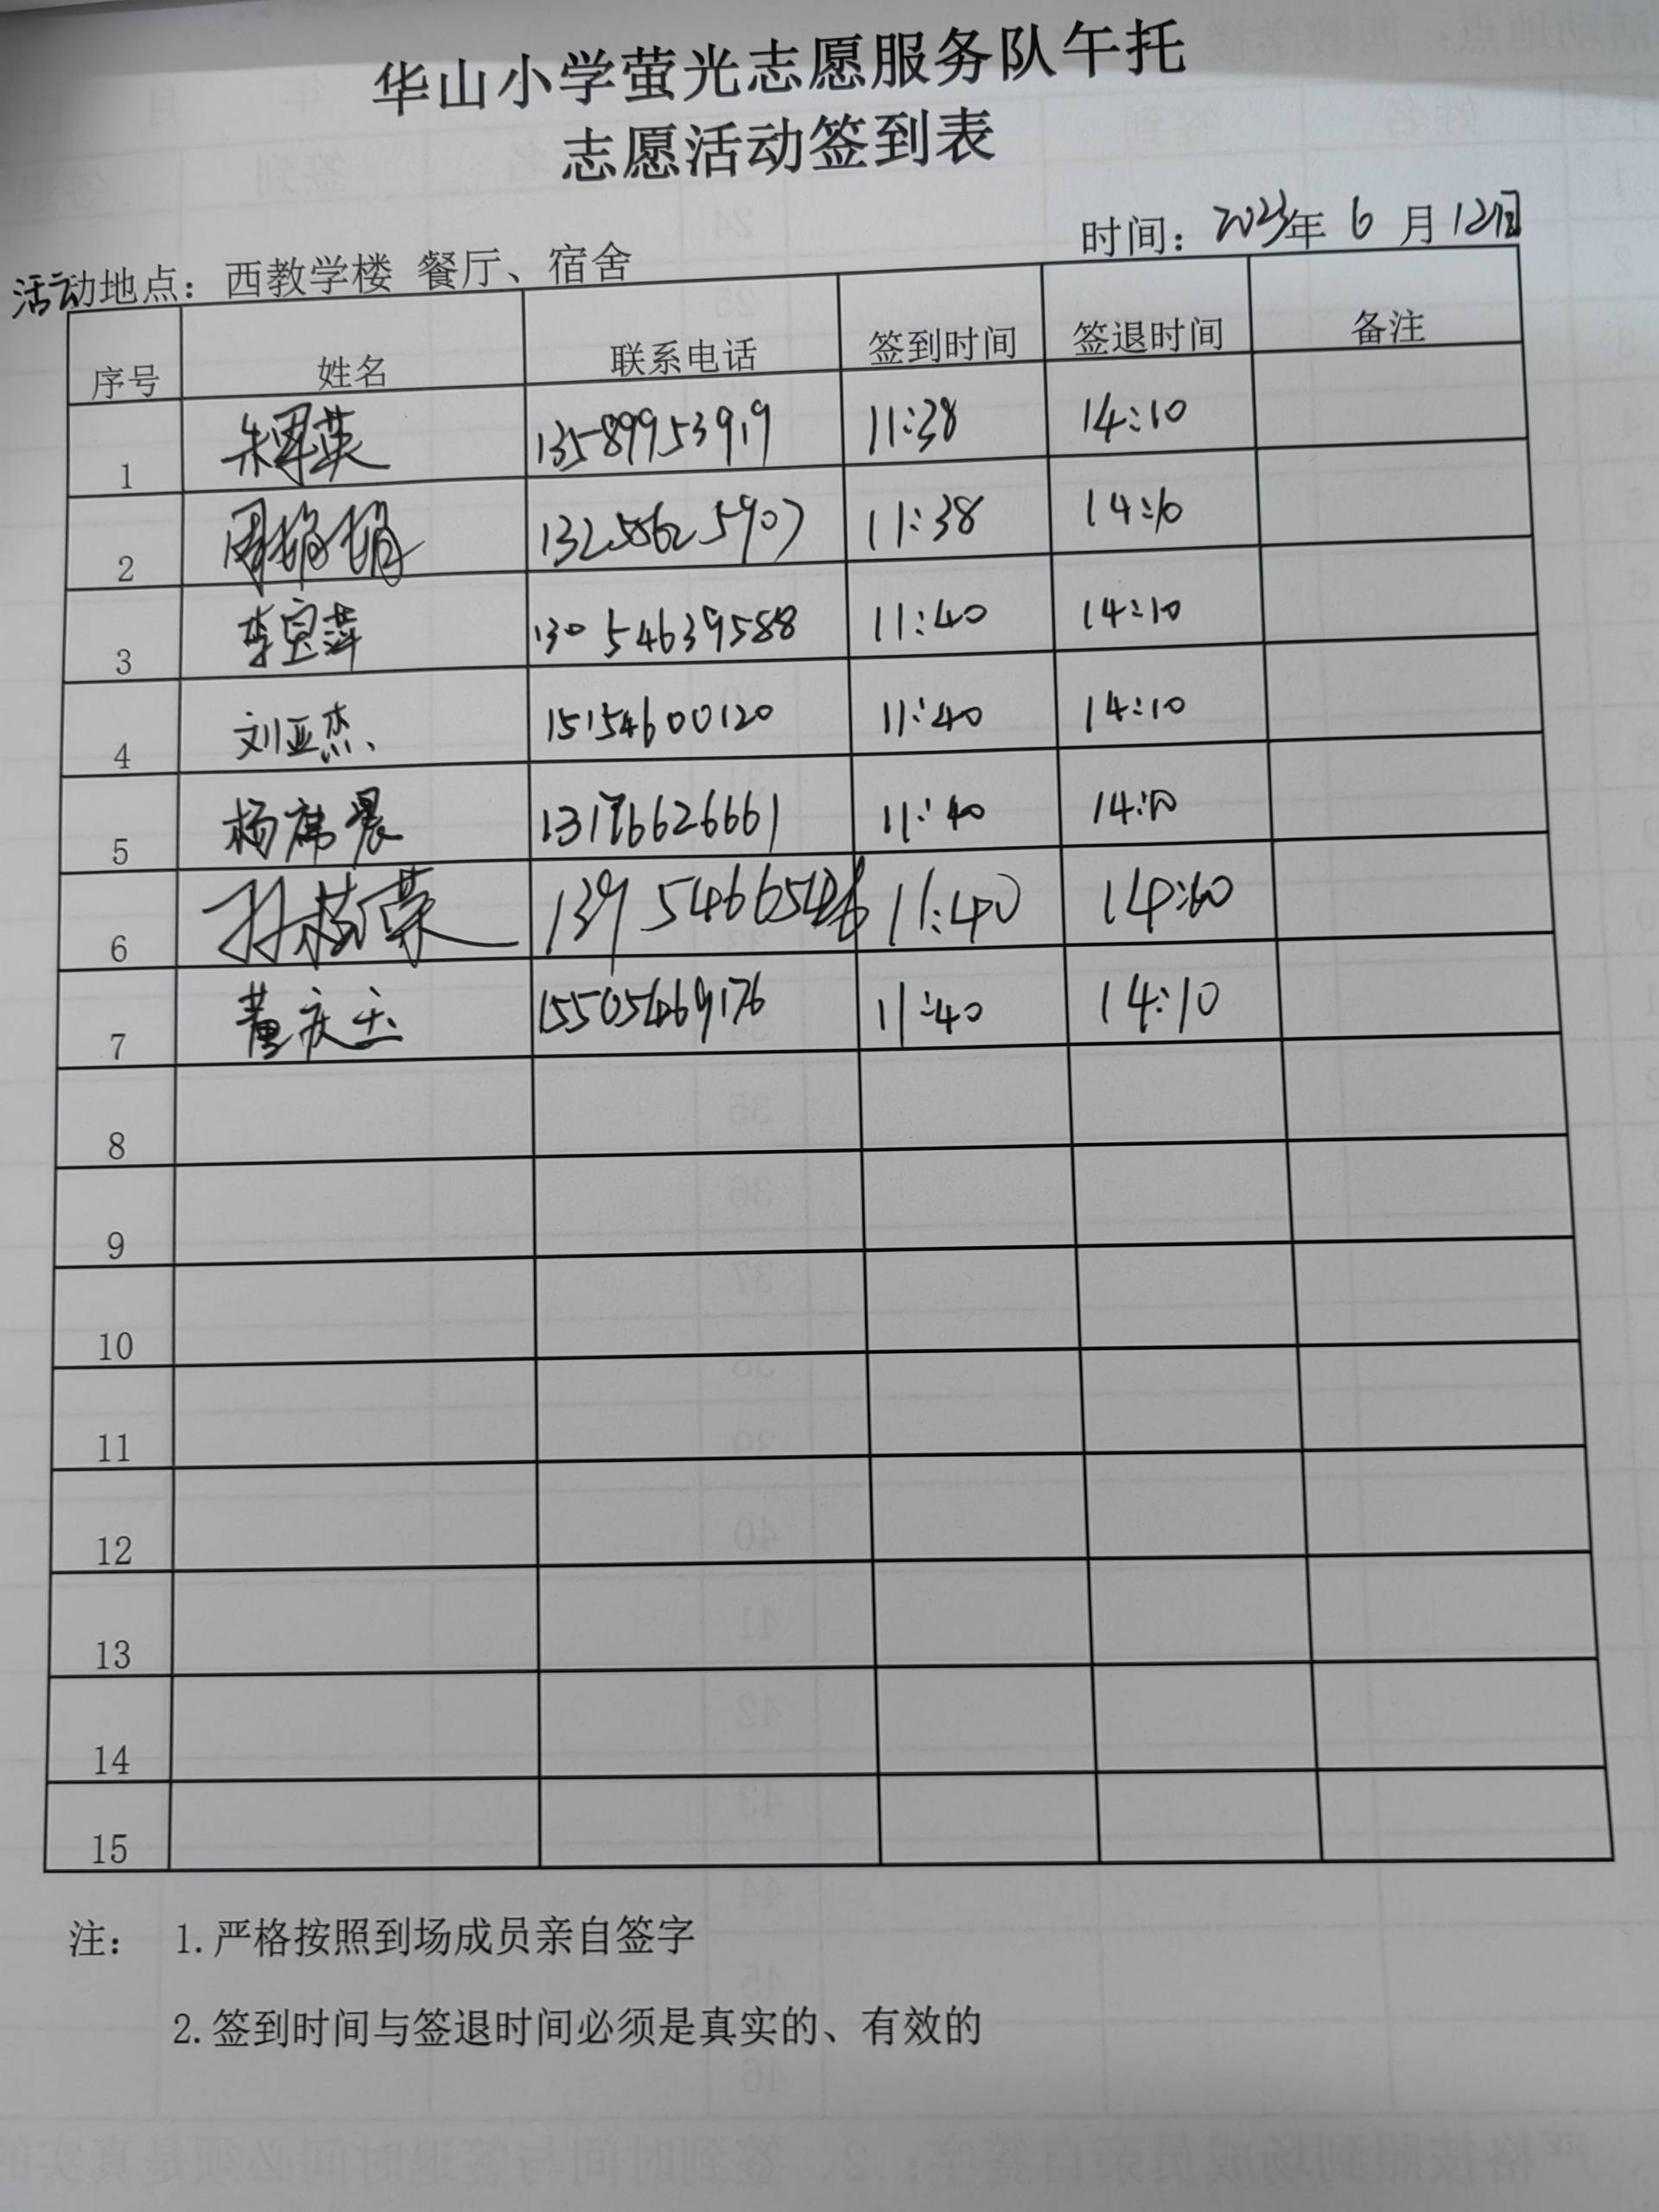 华山小学萤光志愿服务队午托
志愿活动签到表
时间：2023年 6 月 12日
活动地点：西教学楼 餐厅、宿舍
序号 姓名 联系电话 签到时间 签退时间 备注
1 13589953919 11:38 14:10
2 13258625907 11:38 14:10
3 李宜萍 13054639588 11:40 14:10
4 刘亚杰 15154600120 11:40 14:10
5 杨席晨 13176626661 11:40 14:10
6 11:40
7 董庆玉 15505469176 11:40 14:10
8
9
10
11
12
13
14
15
注： 1.严格按照到场成员亲自签字
2.签到时间与签退时间必须是真实的、有效的